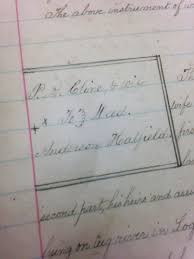 The above instrument of w
P. J. Cline, & wife
To } Deed.
Anderson Hatfield
T
second part, his heirs and assi
lying on tug river in Log